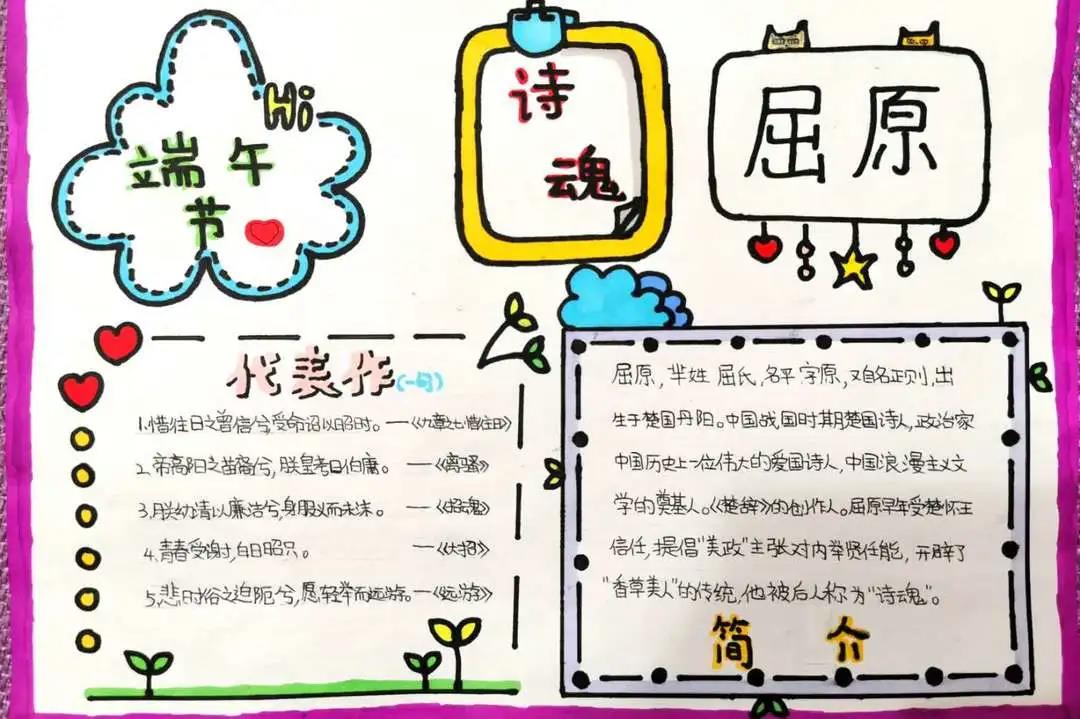 Hi
端午
节
诗
魂
屈原
代表作(一句)
1.惜往日之曾信兮,受命诏以昭时。—《九章之七·惜往日》
2.帝高阳之苗裔兮,朕皇考曰伯庸。—《离骚》
3.朕幼清以廉洁兮,身服义而未沫。—《招魂》
4.青春受谢,白日昭只。—《大招》
5.悲时俗之迫阨兮,愿轻举而远游。—《远游》
屈原,芈姓 屈氏,名平 字原,又自名正则,出
生于楚国丹阳。中国战国时期楚国诗人,政治家
中国历史上一位伟大的爱国诗人,中国浪漫主义文
学的奠基人。《楚辞》的创作人。屈原早年受楚怀王
信任,提倡"美政"主张对内举贤任能,开辟了
"香草美人"的传统,他被后人称为"诗魂"。
简介